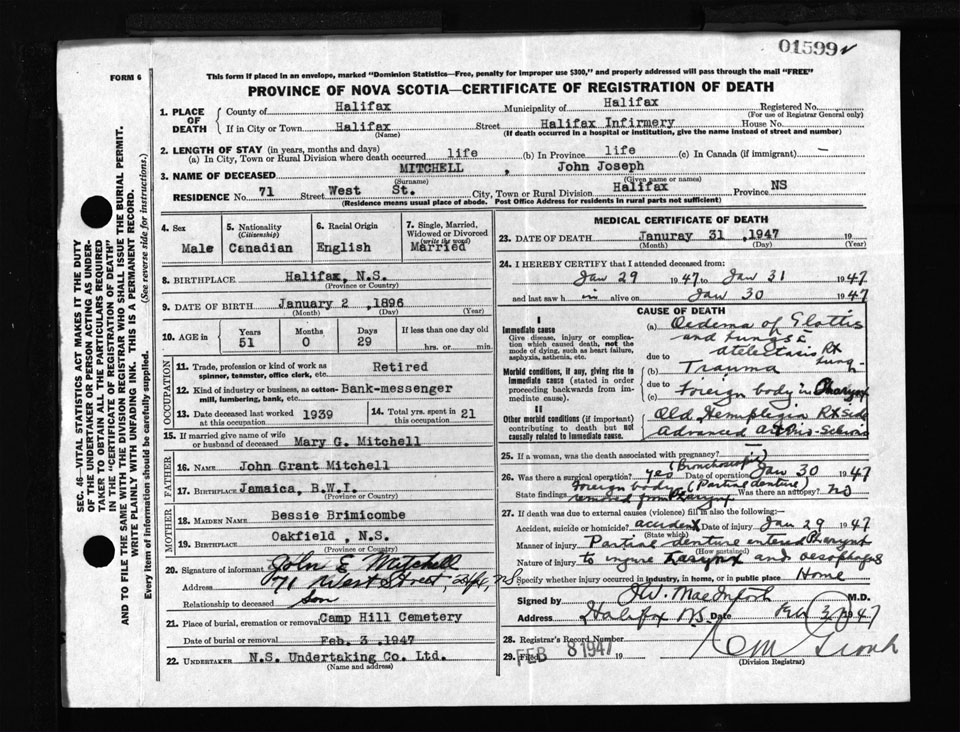 01599
FORM 6
This form if placed in an envelope, marked "Dominion Statistics—Free, penalty for improper use $300," and properly addressed will pass through the mail "FREE"
PROVINCE OF NOVA SCOTIA—CERTIFICATE OF REGISTRATION OF DEATH
SEC. 46—VITAL STATISTICS ACT MAKES IT THE DUTY
OF THE UNDERTAKER OR PERSON ACTING AS UNDER-
TAKER TO OBTAIN ALL THE PARTICULARS REQUIRED
IN THE "CERTIFICATE OF REGISTRATION OF DEATH"
AND TO FILE THE SAME WITH THE DIVISION REGISTRAR WHO SHALL ISSUE THE BURIAL PERMIT.
WRITE PLAINLY WITH UNFADING INK. THIS IS A PERMANENT RECORD.
Every item of information should be carefully supplied. (See reverse side for instructions.)
1. PLACE OF DEATH County of Halifax Municipality of Halifax Registered No.
(For use of Registrar General only)
If in City or Town Halifax Street Halifax Infirmery House No.
(Name) (If death occurred in a hospital or institution, give the name instead of street and number)
2. LENGTH OF STAY (in years, months and days)
(a) In City, Town or Rural Division where death occurred life (b) In Province life (c) In Canada (if immigrant) —
3. NAME OF DECEASED MITCHELL , John Joseph
(Surname) (Given name or names)
RESIDENCE No. 71 Street West St. City, Town or Rural Division Halifax Province NS
(Residence means usual place of abode. Post Office Address for residents in rural parts not sufficient)
4. Sex Male
5. Nationality (Citizenship) Canadian
6. Racial Origin English
7. Single, Married, Widowed or Divorced (write the word) Married
8. BIRTHPLACE Halifax, N.S.
(Province or Country)
9. DATE OF BIRTH January 2 ,1896
(Month) (Day) (Year)
10. AGE in Years Months Days If less than one day old
51 0 29 hrs. or min.
OCCUPATION
11. Trade, profession or kind of work as spinner, teamster, office clerk, etc. Retired
12. Kind of industry or business, as cotton-mill, lumbering, bank, etc. Bank-messenger
13. Date deceased last worked at this occupation 1939
14. Total yrs. spent in this occupation 21
15. If married give name of wife or husband of deceased Mary G. Mitchell
FATHER
16. NAME John Grant Mitchell
17. BIRTHPLACE Jamaica, B.W.I.
(Province or Country)
MOTHER
18. MAIDEN NAME Bessie Brimicombe
19. BIRTHPLACE Oakfield , N.S.
(Province or Country)
20. Signature of informant John E Mitchell
Address 71 West Street, NS
Relationship to deceased Son
21. Place of burial, cremation or removal Camp Hill Cemetery
Date of burial or removal Feb. 3 ,1947
22. UNDERTAKER N.S. Undertaking Co. Ltd.
(Name and address)
MEDICAL CERTIFICATE OF DEATH
23. DATE OF DEATH Januray 31 ,1947 19
(Month) (Day) (Year)
24. I HEREBY CERTIFY that I attended deceased from:
Jan 29 1947 to Jan 31 1947
and last saw him alive on Jan 30 1947
CAUSE OF DEATH
I
Immediate cause (a) Oedema of Glottis
Give disease, injury or complication which caused death, not the mode of dying, such as heart failure, asphyxia, asthenia, etc. and Lungs &
due to Atelectasis Rt Lung
Morbid conditions, if any, giving rise to immediate cause (stated in order proceeding backwards from immediate). (b) Trauma
due to
(c) Foreign body in Pharynx
II
Other morbid conditions (if important) contributing to death but not causally related to immediate cause. Old Hemiplegia Rt Side
Advanced
25. If a woman, was the death associated with pregnancy?
26. Was there a surgical operation? yes (Bronchoscopic) Date of operation Jan 30 1947
State findings Foreign body (Partial denture) removed from Pharynx Was there an autopsy? No
27. If death was due to external causes (violence) fill in also the following:
Accident, suicide or homicide? accident Date of injury Jan 29 1947
(State which)
Manner of injury Partial denture entered Pharynx
(How sustained)
Nature of injury to injure Larynx and oesophagus
Specify whether injury occurred in industry, in home, or in public place Home
Signed by W. MacIntosh M.D.
Address Halifax N.S. Date Feb 3 1947
28. Registrar's Record Number
29. Filed FEB 8 1947 19
(Division Registrar)